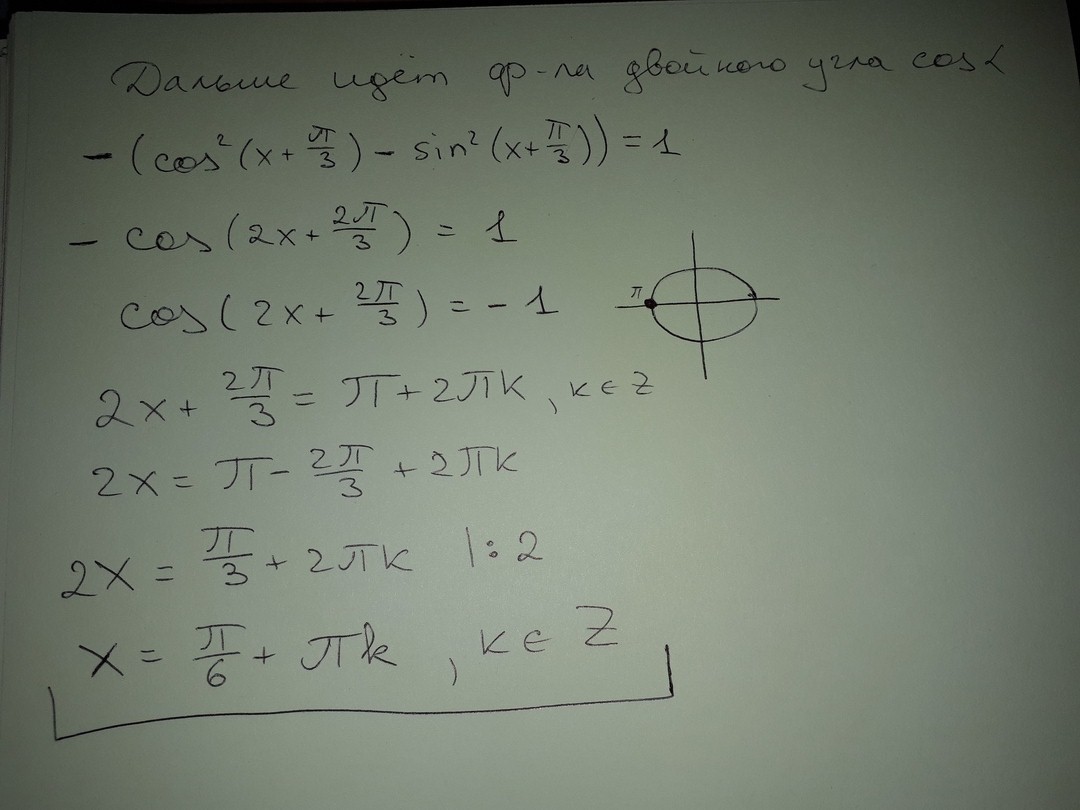 Дальше идёт ф-ла двойного угла cos α
- (cos²(x + π/3) - sin²(x + π/3)) = 1
- cos(2x + 2π/3) = 1
cos(2x + 2π/3) = - 1
π
2x + 2π/3 = π + 2πk, k ∈ Z
2x = π - 2π/3 + 2πk
2x = π/3 + 2πk |: 2
x = π/6 + πk, k ∈ Z